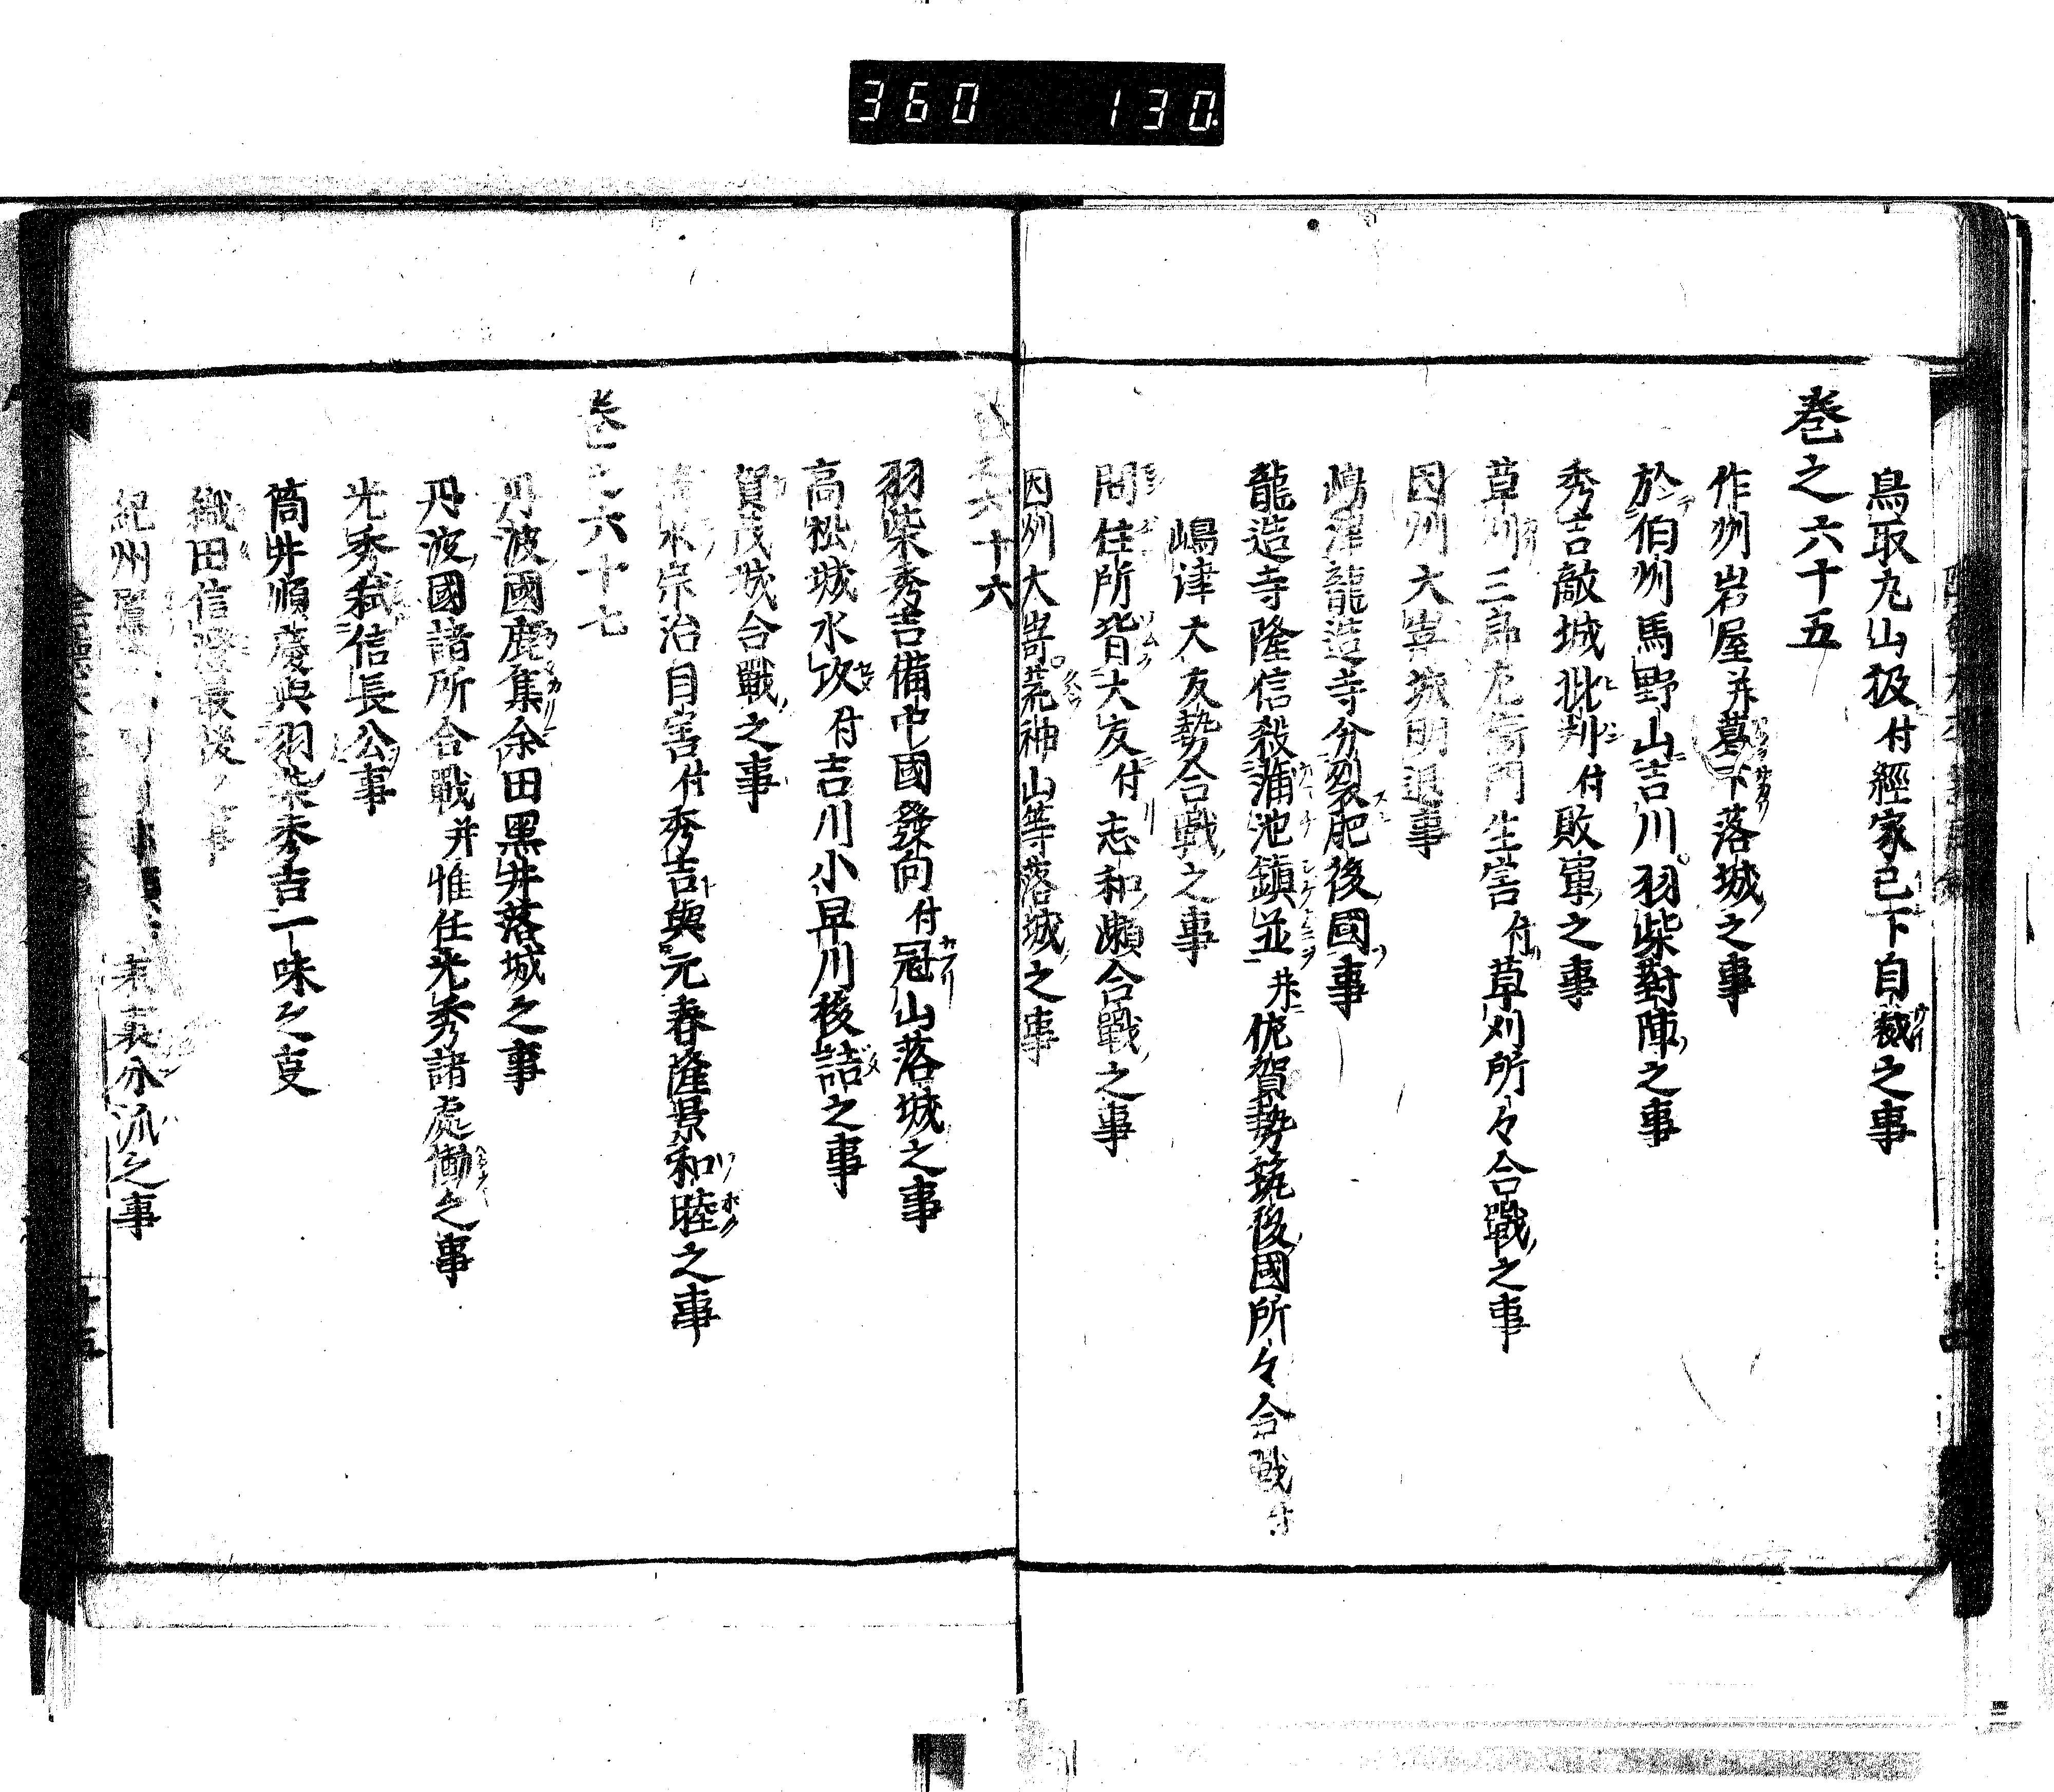 360 130
鳥取丸山扱付經家已下自裁之事
巻之六十五
作州岩屋并葛下落城之事
於伯州馬野山吉川羽柴對陣之事
秀吉敵城批判付敗軍之事
草刈三郎左衛門生害付草刈所々合戰之事
因州大嵜城明退事
嶋津龍造寺分裂肥後國事
龍造寺隆信殺蒲池鎮並并佐賀勢筑後國所々合戰付
嶋津大友勢合戰之事
問住所背大友付志和瀬合戰之事
因州大嵜荒神山等落城之事
巻之六十六
羽柴秀吉備中國發向付冠山落城之事
高松城水攻付吉川小早川後詰之事
賀茂城合戰之事
清水宗治自害付秀吉與元春隆景和睦之事
巻之六十七
丹波國鹿集余田黒井落城之事
丹波國諸所合戰并惟任光秀諸處働之事
光秀弑信長公事
筒井順慶與羽柴秀吉一味之事
織田信澄最後之事
紀州鷺 事 末裏分流之事